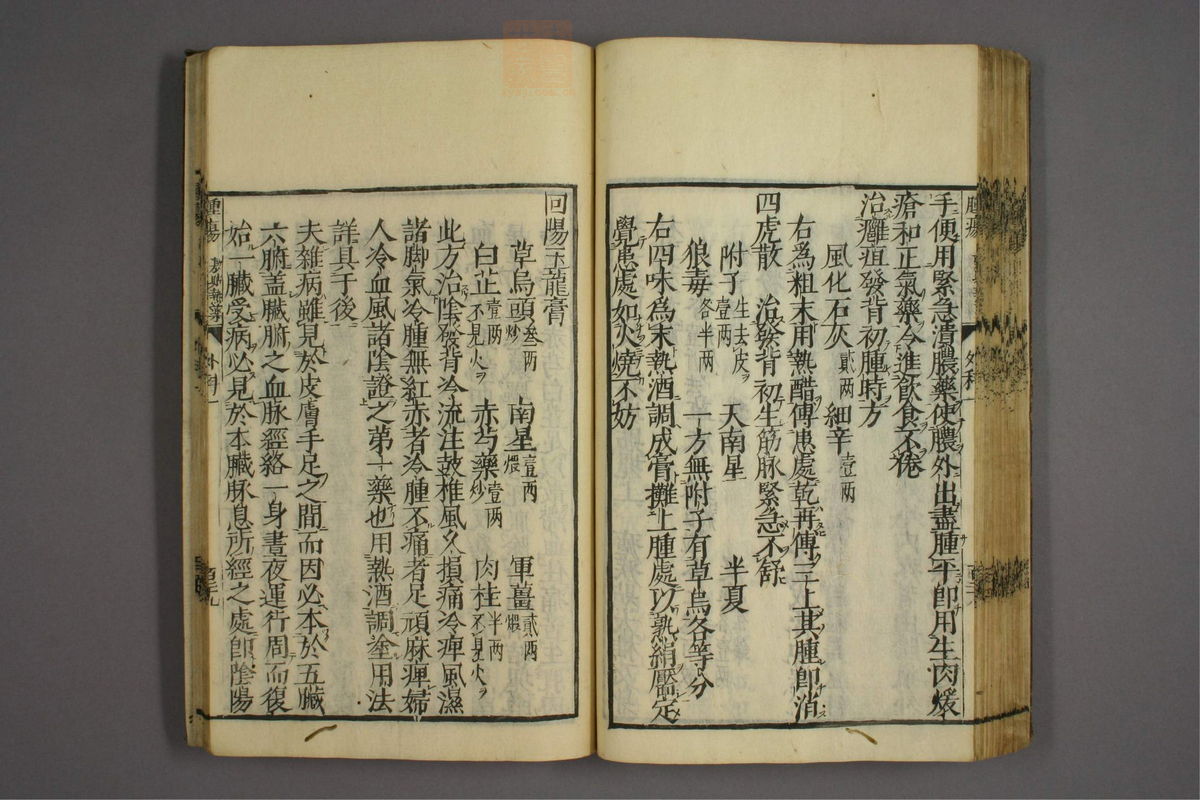 手便用緊急潰膿藥使膿外出盡腫平即用生肉煖
瘡和正氣藥令進飲食不倦
治癰疽發背初腫時方
風化石灰貳兩 細辛壹兩
右為粗末用熱醋傅患處乾再傅三上其腫即消
四虎散 治發背初生筋脉緊急不舒
附子生去皮壹兩 天南星 半夏
狼毒各半兩 一方無附子有草烏各等分
右四味為末熱酒調成膏攤上腫處以熟絹壓定
覺患處如火燒不妨
回陽玉龍膏
草烏頭叁兩炒 南星壹兩煨 軍薑貳兩煨
白芷壹兩不見火ヲ 赤芍藥壹兩炒 肉桂半兩不見火ヲ
此方治陰發背冷流注鼓椎風久損痛冷痺風濕
諸脚氣冷腫無紅赤者冷腫不痛者足頑麻痺婦
人冷血風諸陰證之第一藥也用熱酒調塗用法
詳具于後
夫雜病雖見於皮膚手足之間而因必本於五臟
六腑蓋臟腑之血脉經絡一身晝夜運行周而復
始一臟受病必見於本臟脉息所經之處即陰陽
腫瘍
外科